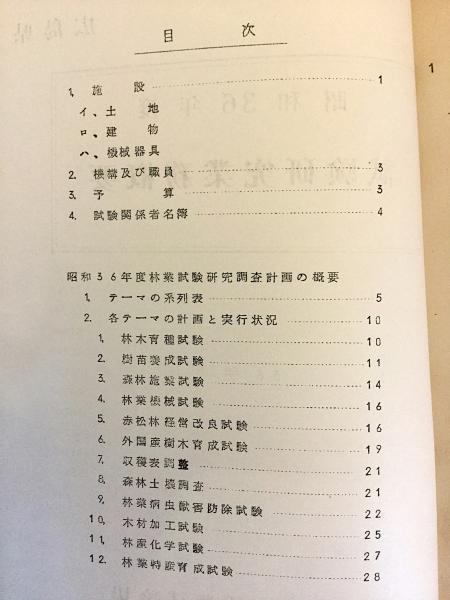 目次
1. 施設 1
イ、土地
ロ、建物
ハ、機械器具
2. 機構及び職員 3
3. 予算 3
4. 試験関係者名簿 4
昭和36年度林業試験研究調査計画の概要
1. テーマの系列表 5
2. 各テーマの計画と実行状況 10
1. 林木育種試験 10
2. 樹苗養成試験 11
3. 森林施業試験 14
4. 林業機械試験 16
5. 赤松林経営改良試験 16
6. 外国産樹木育成試験 19
7. 収穫表調整 21
8. 森林土壌調査 21
9. 林業病虫獣害防除試験 22
10. 木材加工試験 25
11. 林産化学試験 27
12. 林業特産育成試験 28
1